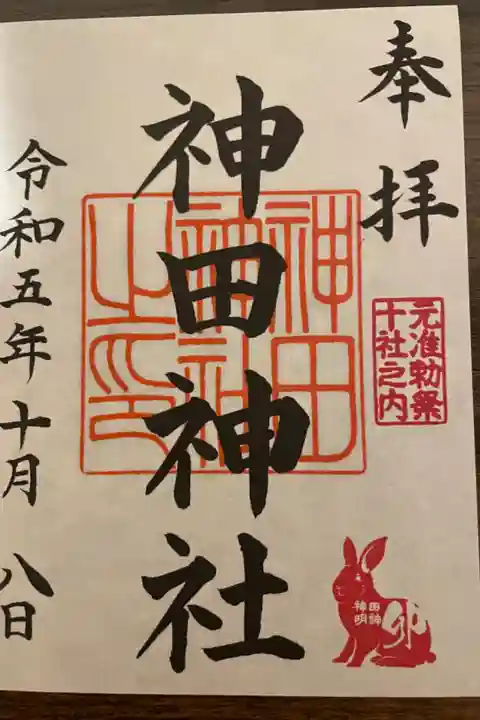 奉拝
元准勅祭
十社之内
神田神社
神田
神社
之印
卯
神田
明神
令和五年十月八日